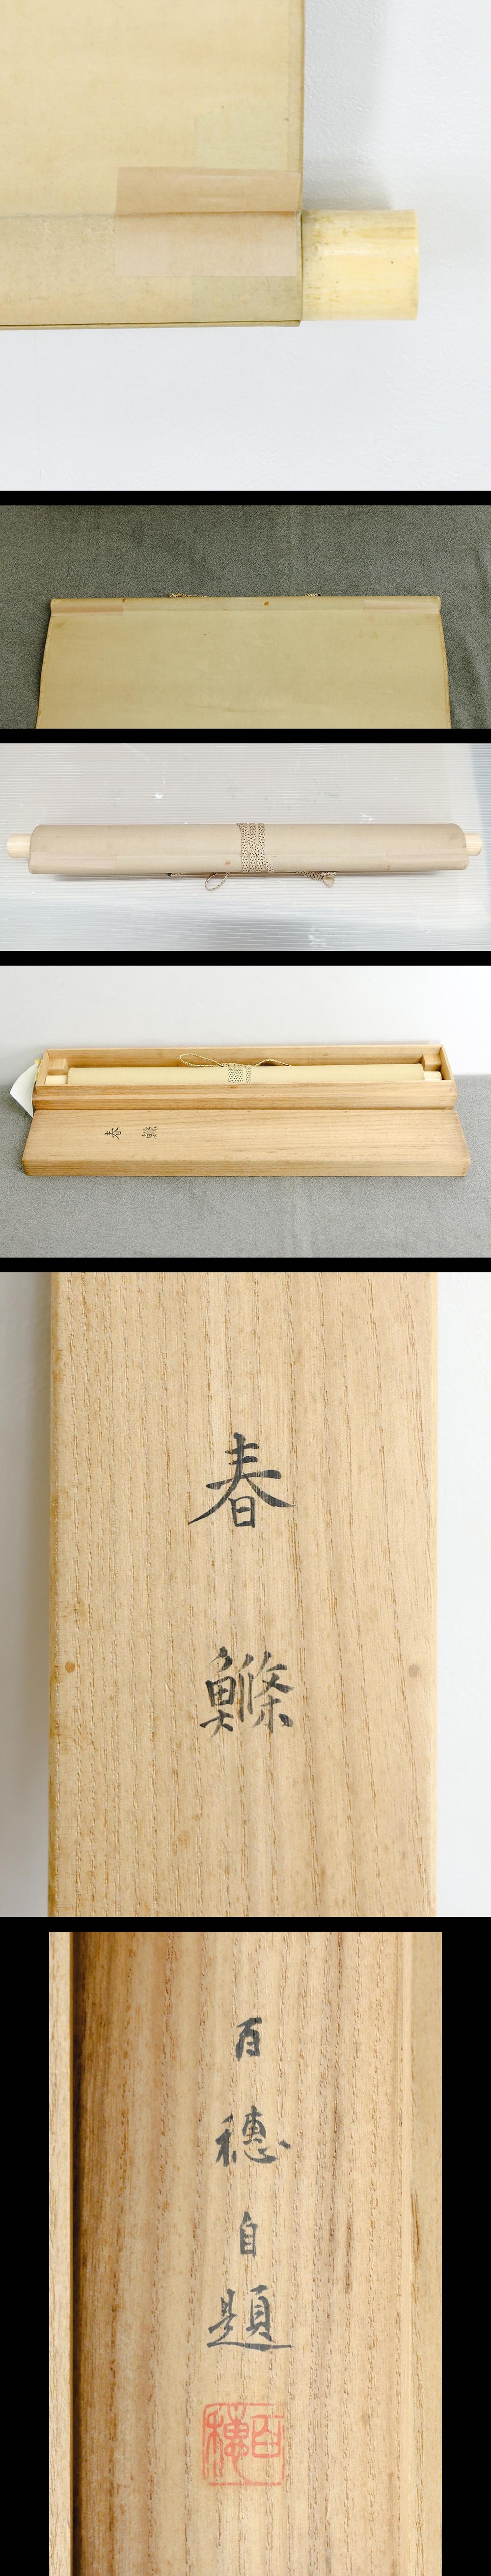 春鰷
春
鰷
百
穗
自
題
百穗